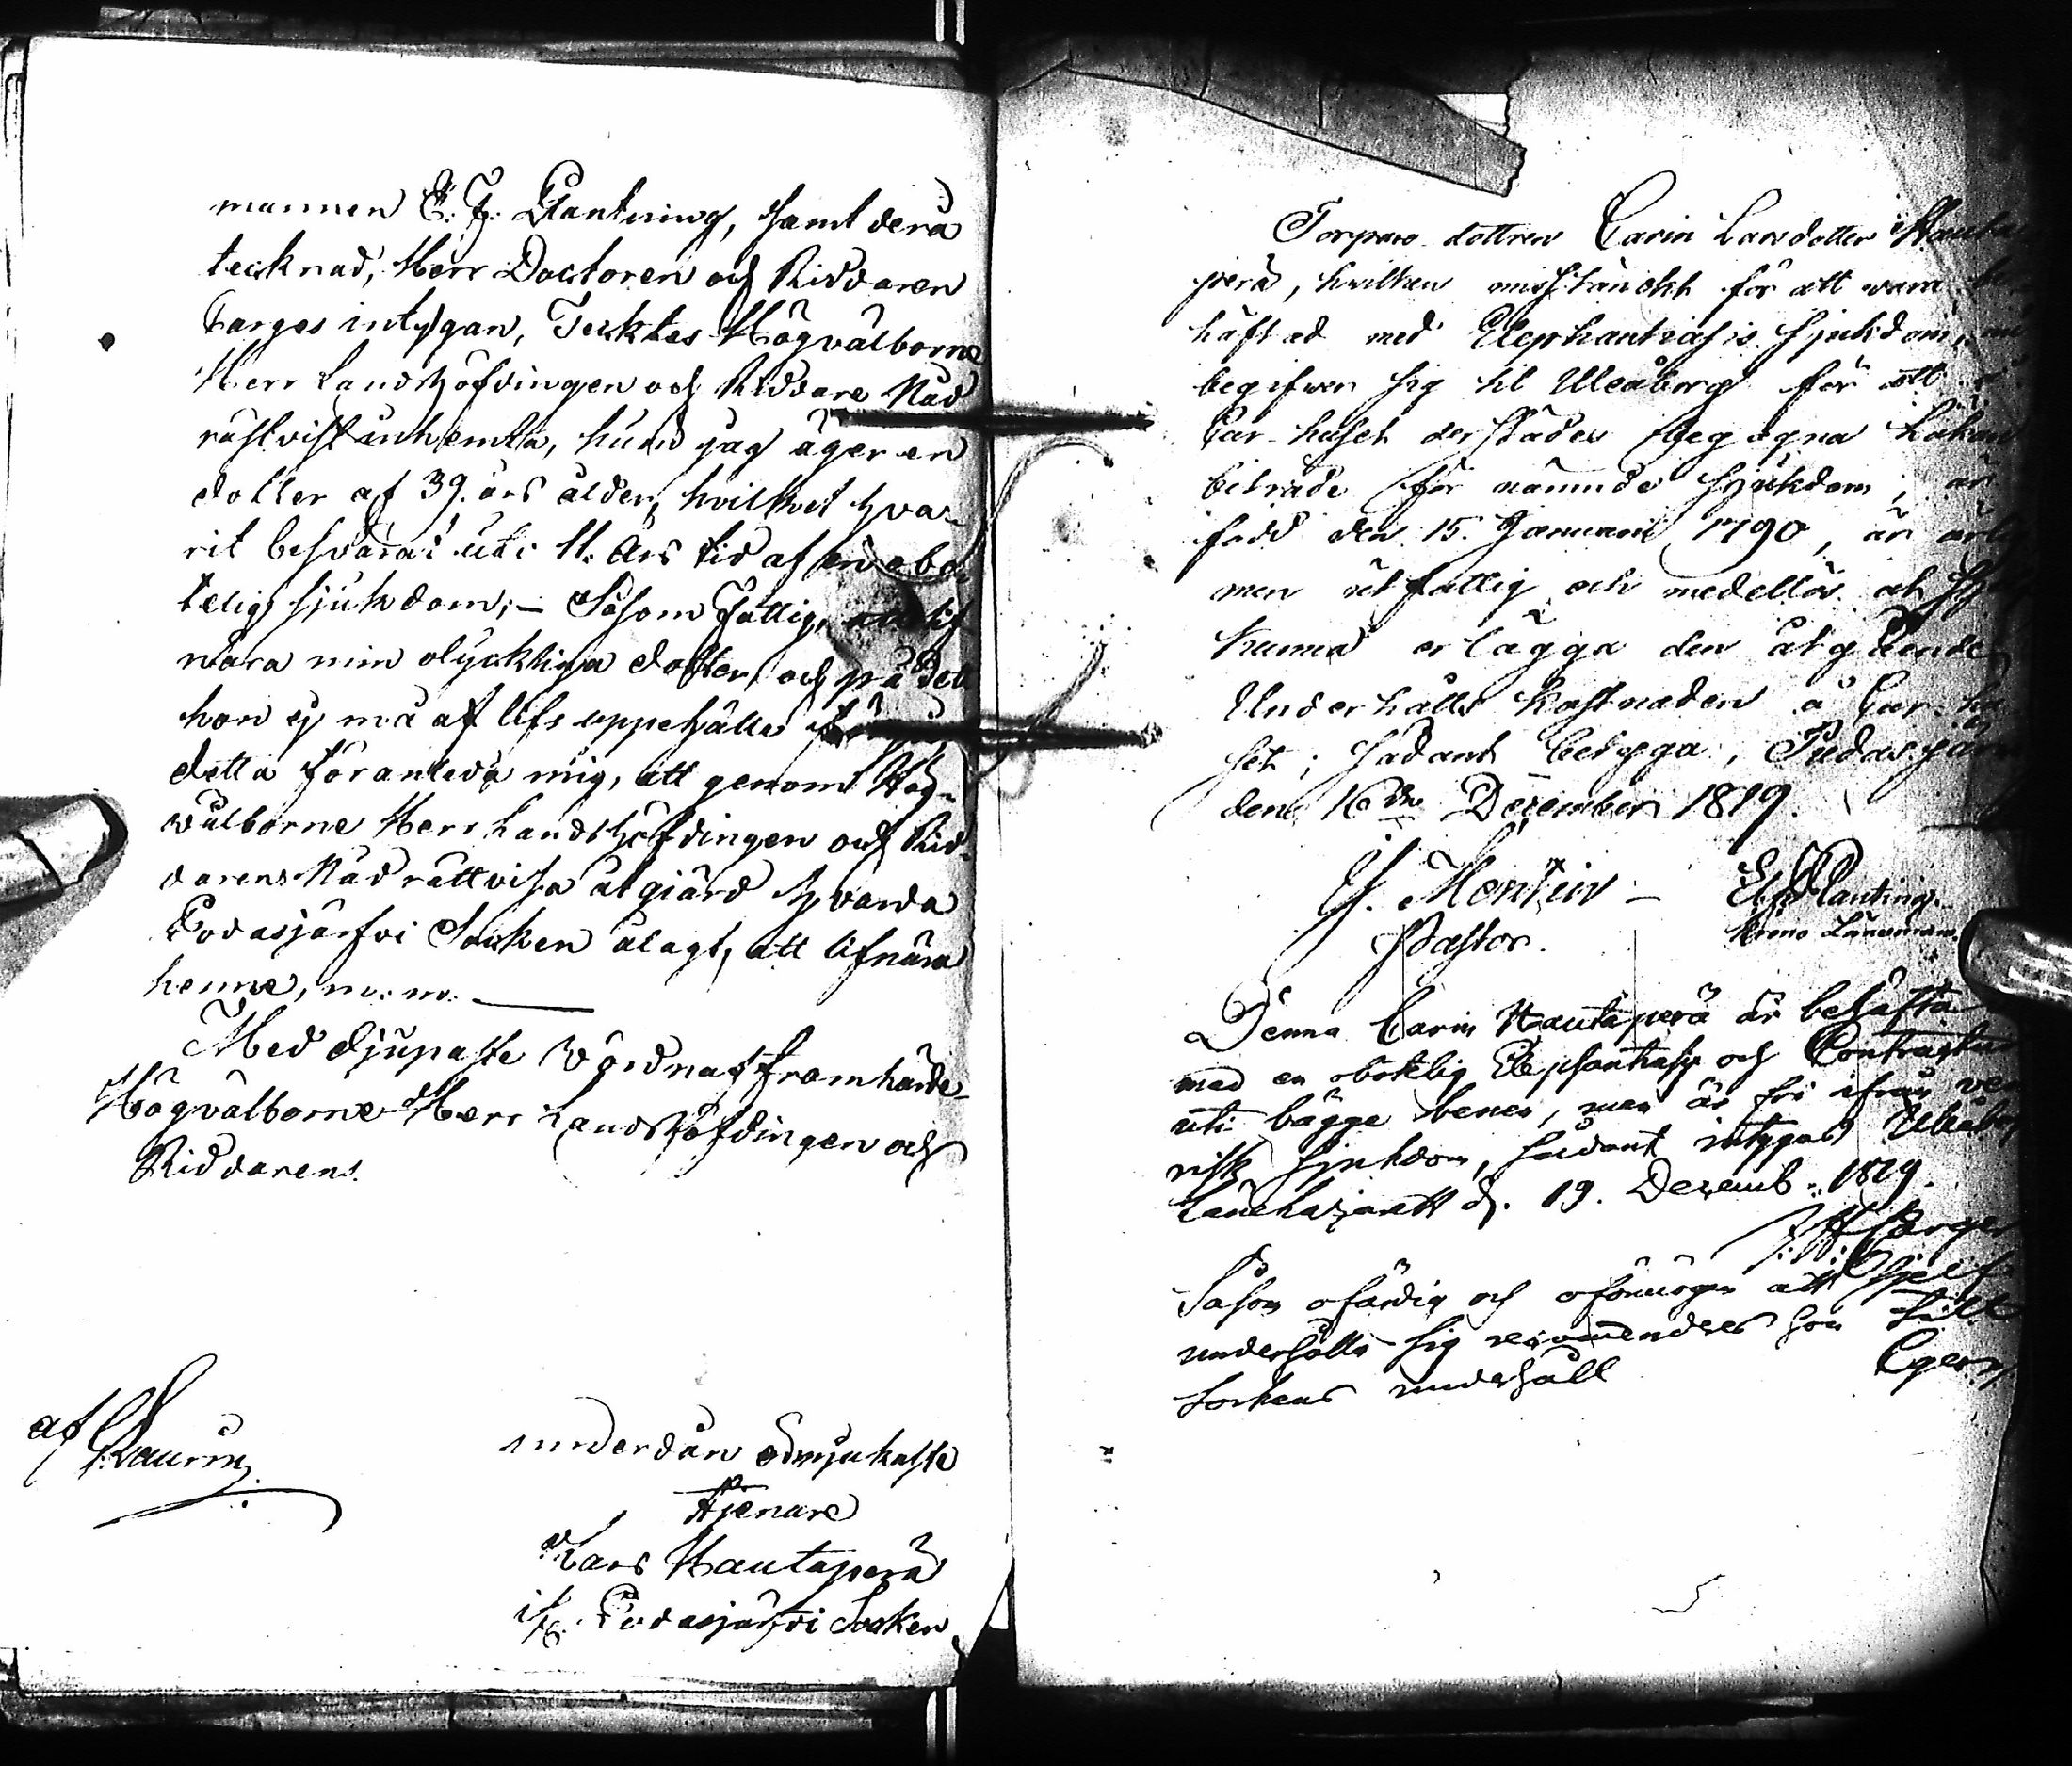 mannen E. J. Planting, samt derå
tecknad, Herr Doctoren och Riddaren
Barges intygan, Tecktes Högvälborne
Herr Landshöfdingen och Riddare Nåd
rättvist inhemta, hurū jag äger en
dotter af 39. års ålder, hvilket hva-
rit besvärad uti 11. Års tid af en obo-
telig sjukdom; — Såsom Fattig,
nära min olyckliga dotter, och på det
hon ej må af lifs uppehälle
detta föranleda mig, att genom Hög-
välborne Herr Landshöfdingen och Rid-
darens Nåd rättvisa åtgiärd hvarda
Podasjärfvi Socken ålagt, att lifnära
henne, m. m.
Med djupaste vördnad framhärda
Högvälborne Herr Landshöfdingen och
Riddarens
underdån ödmjukaste
tjenare
Lars Hautaperä
if. Podasjärfvi Socken
af
Torpare dottren Carin Larsdotter Hauta
perä, hvilken misstänckt för att vara be
häftad med Elephantiasis sjukdom,
begifver sig til Uleåborg för att
Cur-huset derstädes begagna Läkare
biträde för nämnde sjukdom, är
född den 15. Januarii 1790, är ärlig
men utfattig och medellös at sjelf
kunna erlägga den åtgående
Underhålls kostnaden å Cur-hu
set; sådant betyga, Pudasjärvi
den 16de December 1819.
J. Montin — E. J. Planting
Pastor. Krono Länsman.
Denna Carin Hautaperä är behäftad
med en obotelig Elephantiasis och Contractur
uti bägge benen, men är fri ifrån vene
risk sjukdom, sådant intygas Uleåborgs
Länelazarett d. 19. Decemb. 1819.
Barge
Såsom ofärdig och oförmögen att sjelf
underhålla sig recommenderas hon till
Sockens underhåll